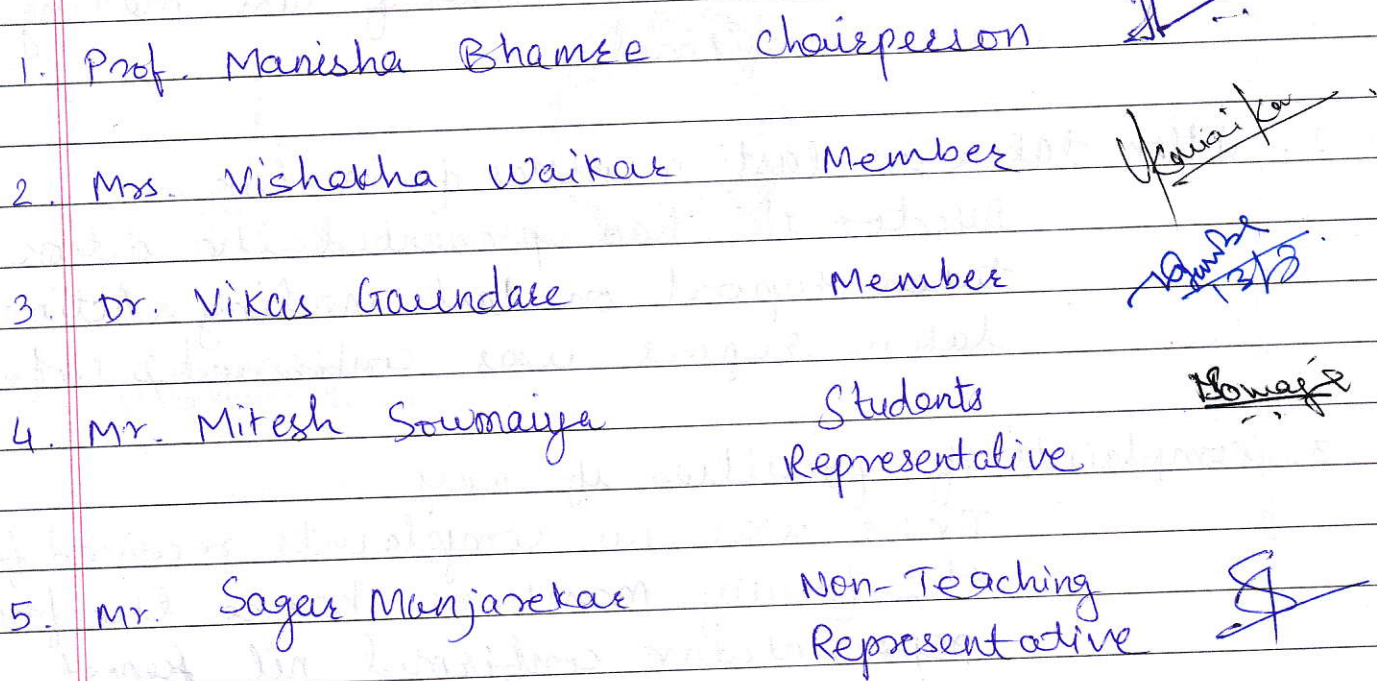 1. Prof. Manisha Bhamre Chairperson
2. Mrs. Vishakha Waikar Member
3. Dr. Vikas Gaundare Member 13/3
4. Mr. Mitesh Soumaiya Students
Representative
5. Mr. Sagar Manjarekar Non-Teaching
Representative